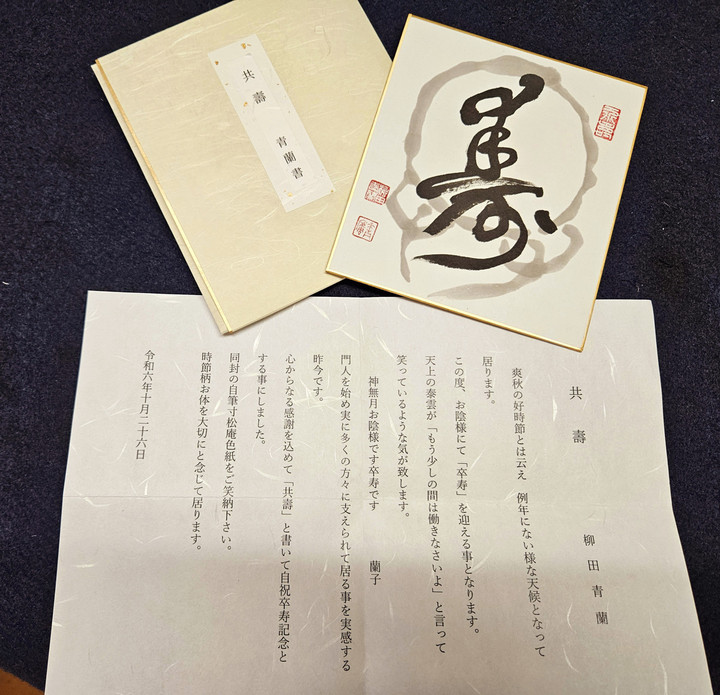 共壽
青蘭書
寿
共壽
柳田青蘭
爽秋の好時節とは云え　例年にない様な天候となって
居ります。
この度、お陰様にて「卒寿」を迎える事となります。
天上の泰雲が「もう少しの間は働きなさいよ」と言って
笑っているような気が致します。
神無月お陰様です卒寿です　蘭子
門人を始め実に多くの方々に支えられて居る事を実感する
昨今です。
心からなる感謝を込めて「共壽」と書いて自祝卒寿記念と
する事にしました。
同封の自筆寸松庵色紙をご笑納下さい。
時節柄お体を大切にと念じて居ります。
令和六年十月二十六日